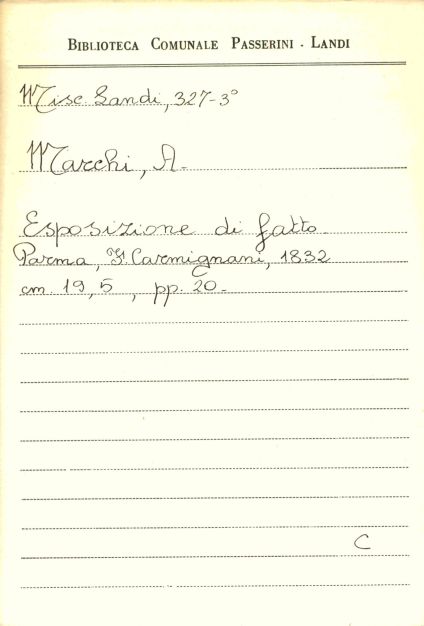 BIBLIOTECA COMUNALE PASSERINI - LANDI
Misc. Landi, 327-3°
Marchi, A.
Esposizione di fatto.
Parma, F. Carmignani, 1832
cm. 19,5, pp. 20.
C